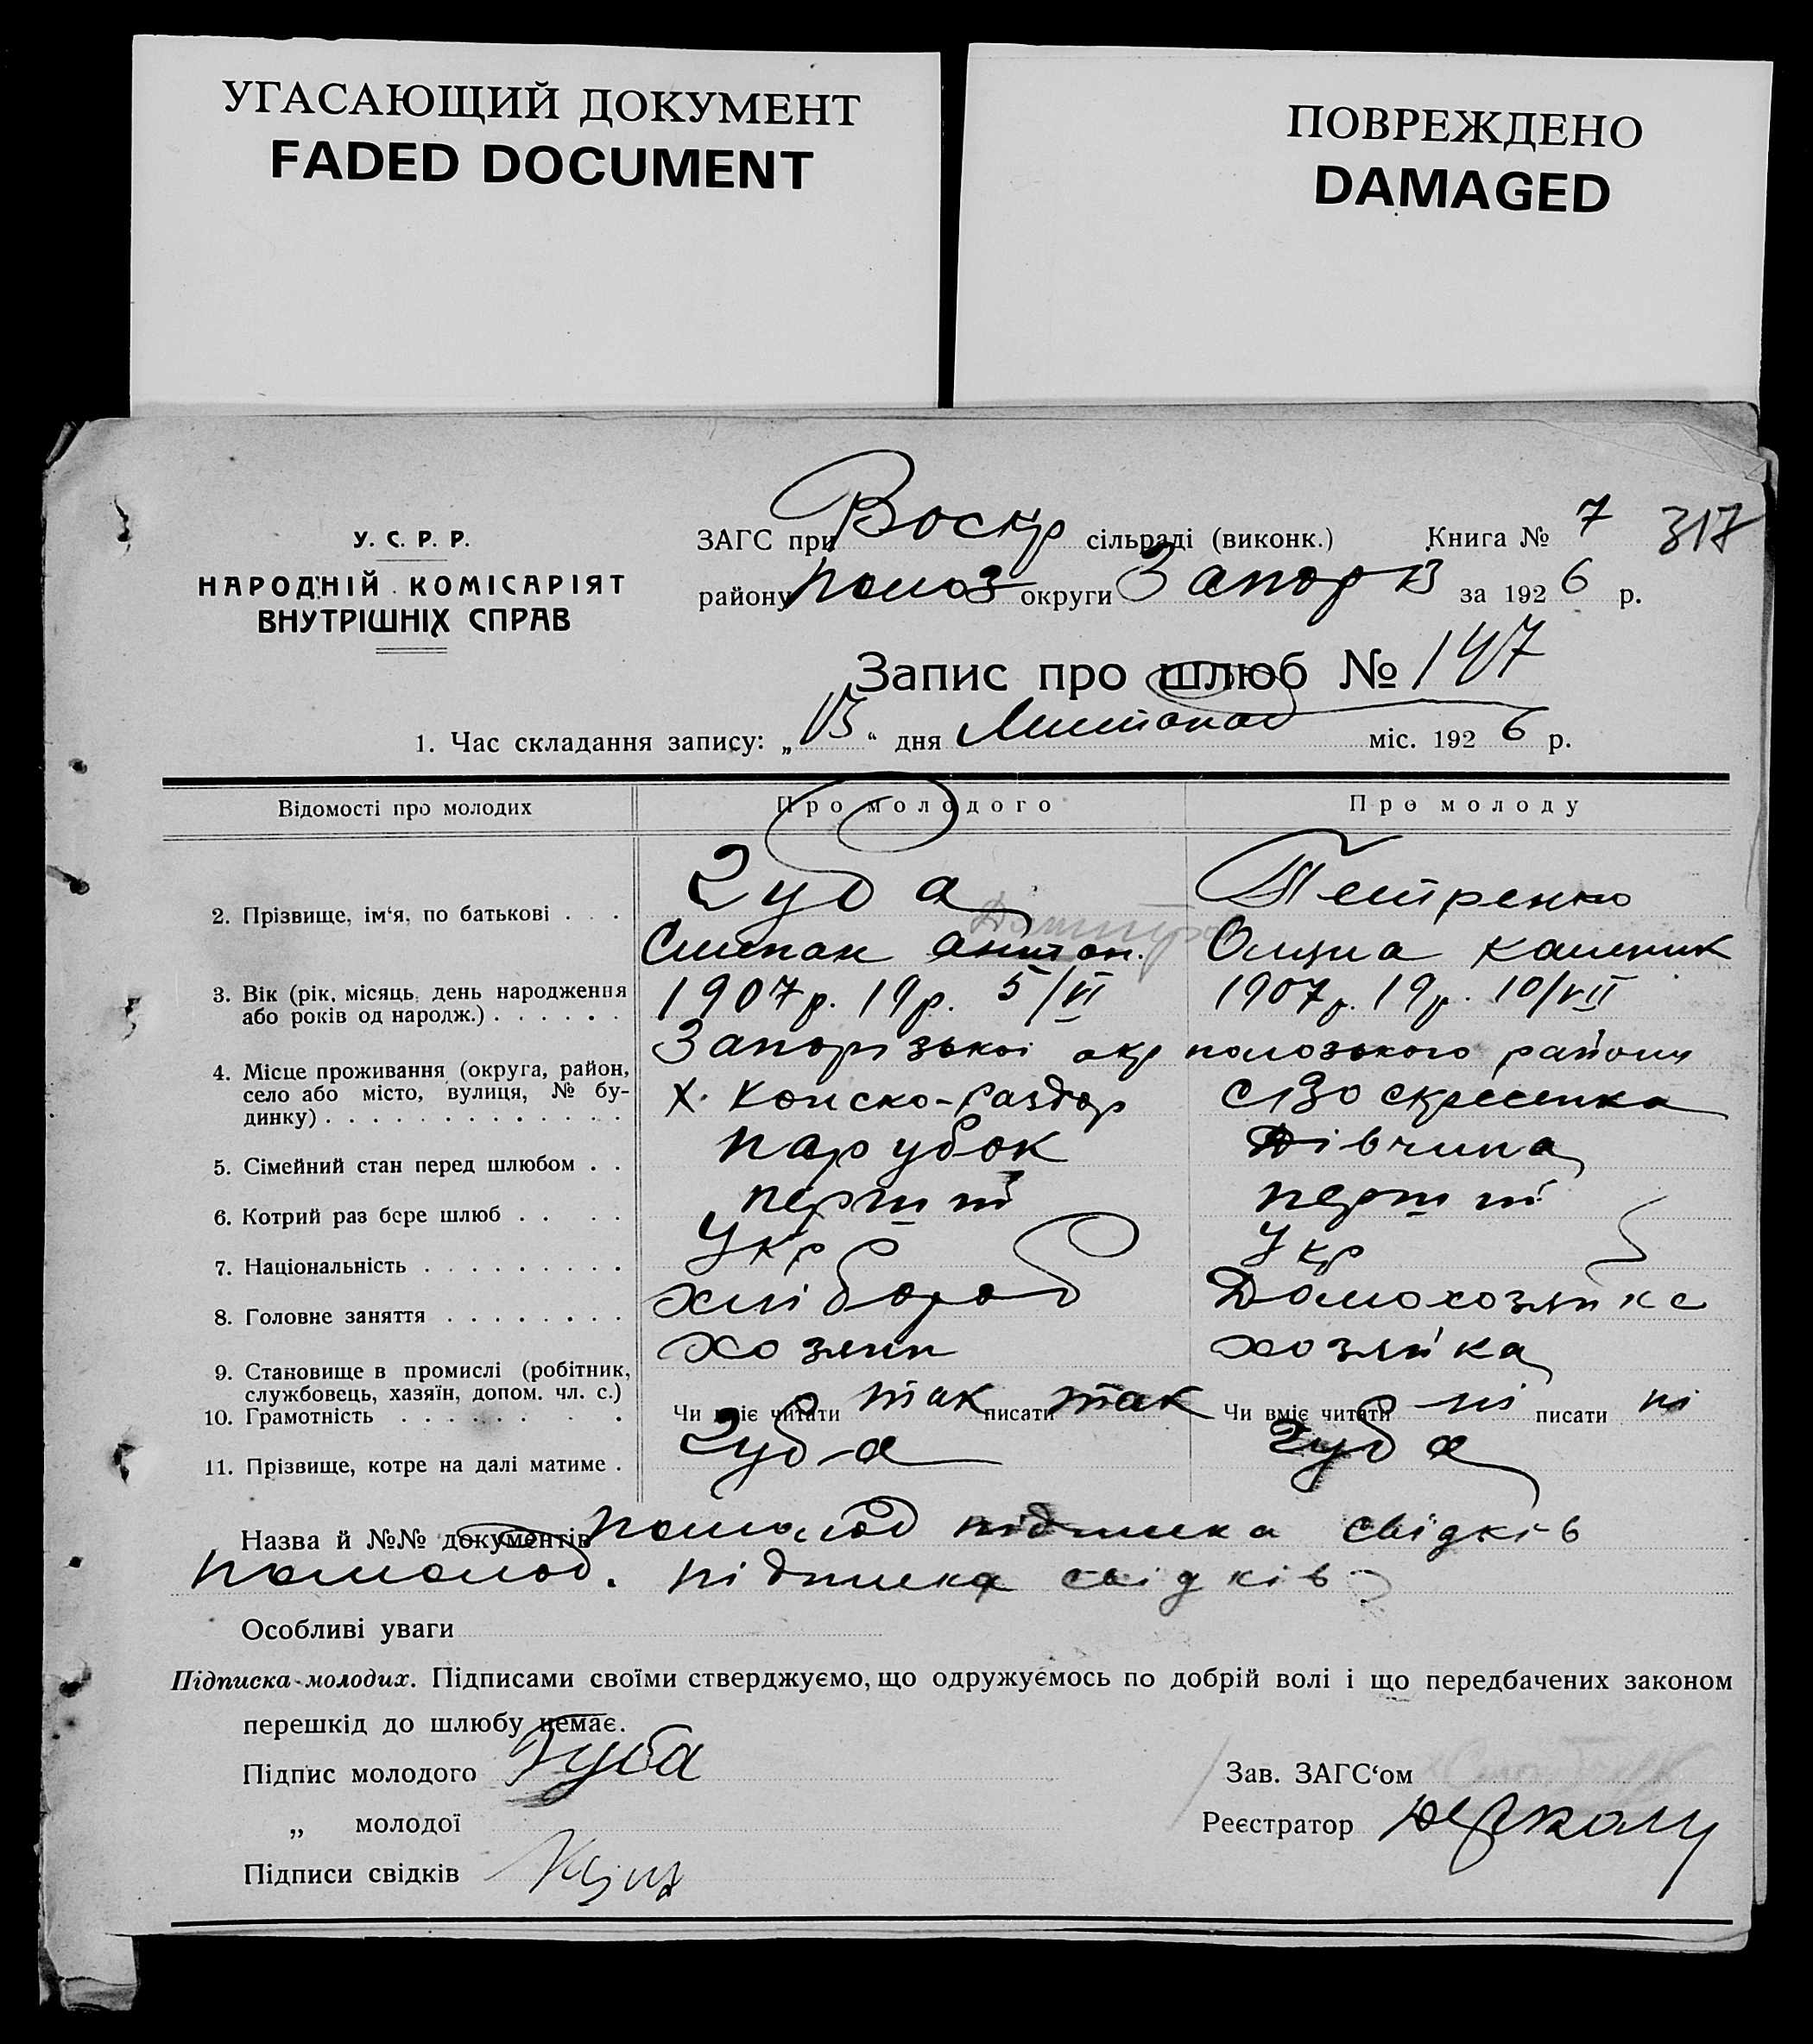 УГАСАЮЩИЙ ДОКУМЕНТ
FADED DOCUMENT
ПОВРЕЖДЕНО
DAMAGED
У. С. Р. Р.
НАРОДНІЙ КОМІСАРІЯТ
ВНУТРІШНІХ СПРАВ
ЗАГС при Воскр сільраді (виконк.) Книга № 7 317
району Полоз округи Запор за 1926 р.
Запис про шлюб № 147
1. Час складання запису: „13“ дня Листопад міс. 1926 р.
Відомості про молодих Про молодого Про молоду
2. Прізвище, ім‘я, по батькові . . . Зуба Петренко
Дмитров
Степан Антон. Олина Каленик
3. Вік (рік, місяць, день народження 1907 р. 19 р. 5/VI 1907 р. 19 р. 10/VII
або років од народж.) . . . . . .
Запорізької окр полозького району
4. Місце проживання (округа, район,
село або місто, вулиця, № бу- х. Конско-Раздор с Воскресенка
динку) . . . . . . . . . . . . .
5. Сімейний стан перед шлюбом . . парубок Дівчина
6. Котрий раз бере шлюб . . . . перший перший
7. Національність . . . . . . . . . Укр Укр
8. Головне заняття . . . . . . . . хлібороб Домохозяйка
9. Становище в промислі (робітник, хозяин хозяйка
службовець, хазяїн, допом. чл. с.)
10. Грамотність . . . . . . . . Чи вміє читати так писати так Чи вміє читати ні писати ні
11. Прізвище, котре на далі матиме . Зуба Зуба
Назва й №№ документів підписка свідків
підписка свідків
Особливі уваги
Підписка молодих. Підписами своїми стверджуємо, що одружуємось по добрій волі і що передбачених законом
перешкід до шлюбу немає.
Підпис молодого Зуба Зав. ЗАГС‘ом
„ молодої Реєстратор
Підписи свідків